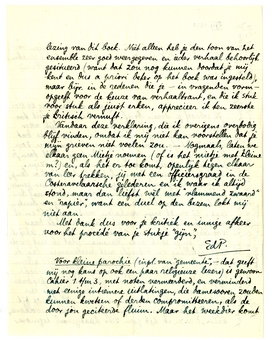 lezing van dit boek. Niet alleen heb je den toon van het
ensemble zeer goed weergegeven en ieder verhaal behoorlijk
gesitueerd (want dat zou nog kunnen doordat je mij
kent en dus a priori beter op het boek was ingesteld),
maar bijv. in de redenen die je — in vragenden vorm —
opgeeft voor de keuze van verhaaltrant, en die ik stuk
voor stuk als juist erken, apprecieer ik ten zeerste
je kritisch vernuft.
Vandaar deze verklaring, die ik overigens overbodig
blijf vinden, omdat ik mij niet kan voorstellen dat je
mijn grieven niet voelen zou. — Nogmaals, laten we
elkaar geen Mietje noemen (of is het mietje met kleine
m?) en, als het er toe komt, openlijk tegen elkaar
van leer trekken, jij met een officiersgraad in de
gelederen en ik waar ik altijd
stond, maar dan liefst wèl met "vlammend zwaard"
en "rapier", want een duel op den bezem lokt mij
niet aan.
Met dank dus voor je kritiek en innige afkeer
voor het procédé van je stukje "gijn",
EdP.
Voor kleine parochie (eigl. van "gemeente", — dat geeft
mij nog kans op ook een paar religieuze lezers) is gewoon
Cahier 1 t/m 3, met noten vermeerderd, en verminderd
met eenige intiemere uitlatingen, die bewezen zouden
kunnen kwetsen of derden compromitteeren, als de
door jou geciteerde fluim. Maar het weekdier komt